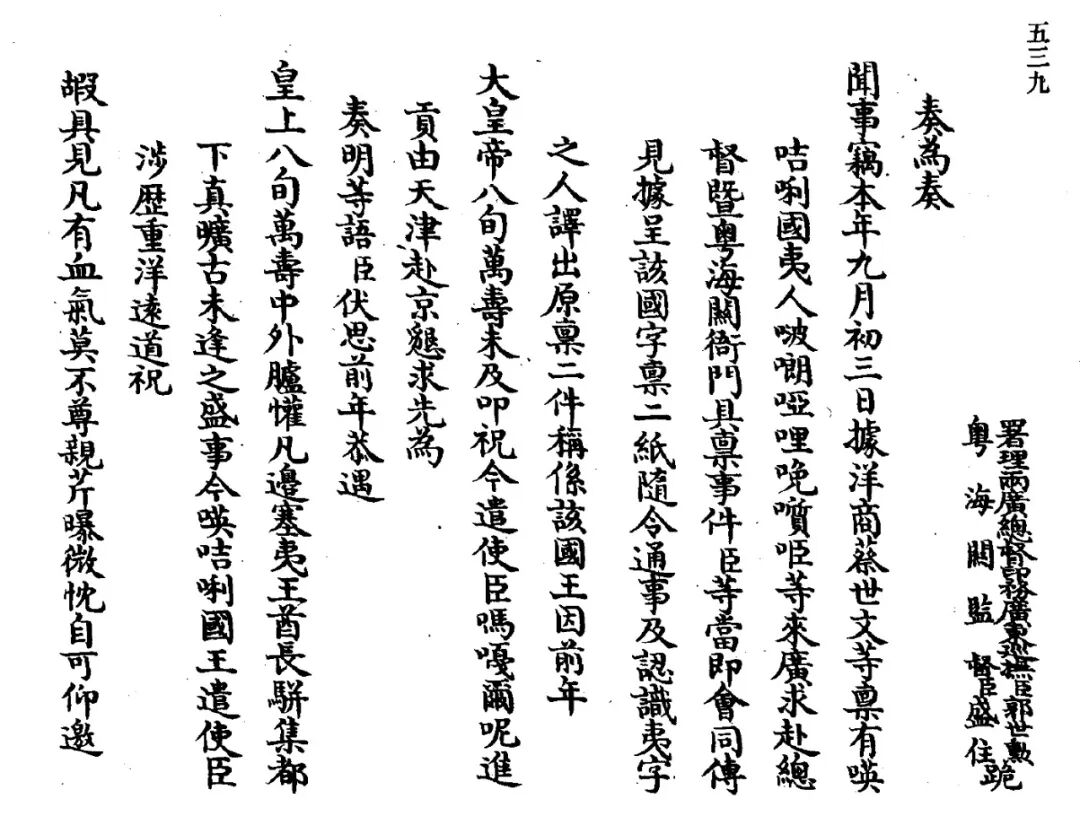 五三九
署理兩廣總督印務廣東巡撫臣郭世勳跪
粵海關監督臣盛住
奏為奏
聞事竊本年九月初三日據洋商蔡世文等稟有𠸄
咭唎國夷人啵啷啞哩唍嘪㖶等來廣求赴總
督暨粵海關衙門具稟事件臣等當即會同傳
見據呈該國字稟二紙隨令通事及認識夷字
之人譯出原稟二件稱係該國王因前年
大皇帝八旬萬壽未及叩祝今遣使臣嗎嘎爾呢進
貢由天津赴京懇求先為
奏明等語臣伏思前年恭遇
皇上八旬萬壽中外臚懽凡邊塞夷王酋長駢集都
下真曠古未逢之盛事今𠸄咭唎國王遣使臣
涉歷重洋遠道祝
嘏具見凡有血氣莫不尊親芹曝微忱自可仰邀